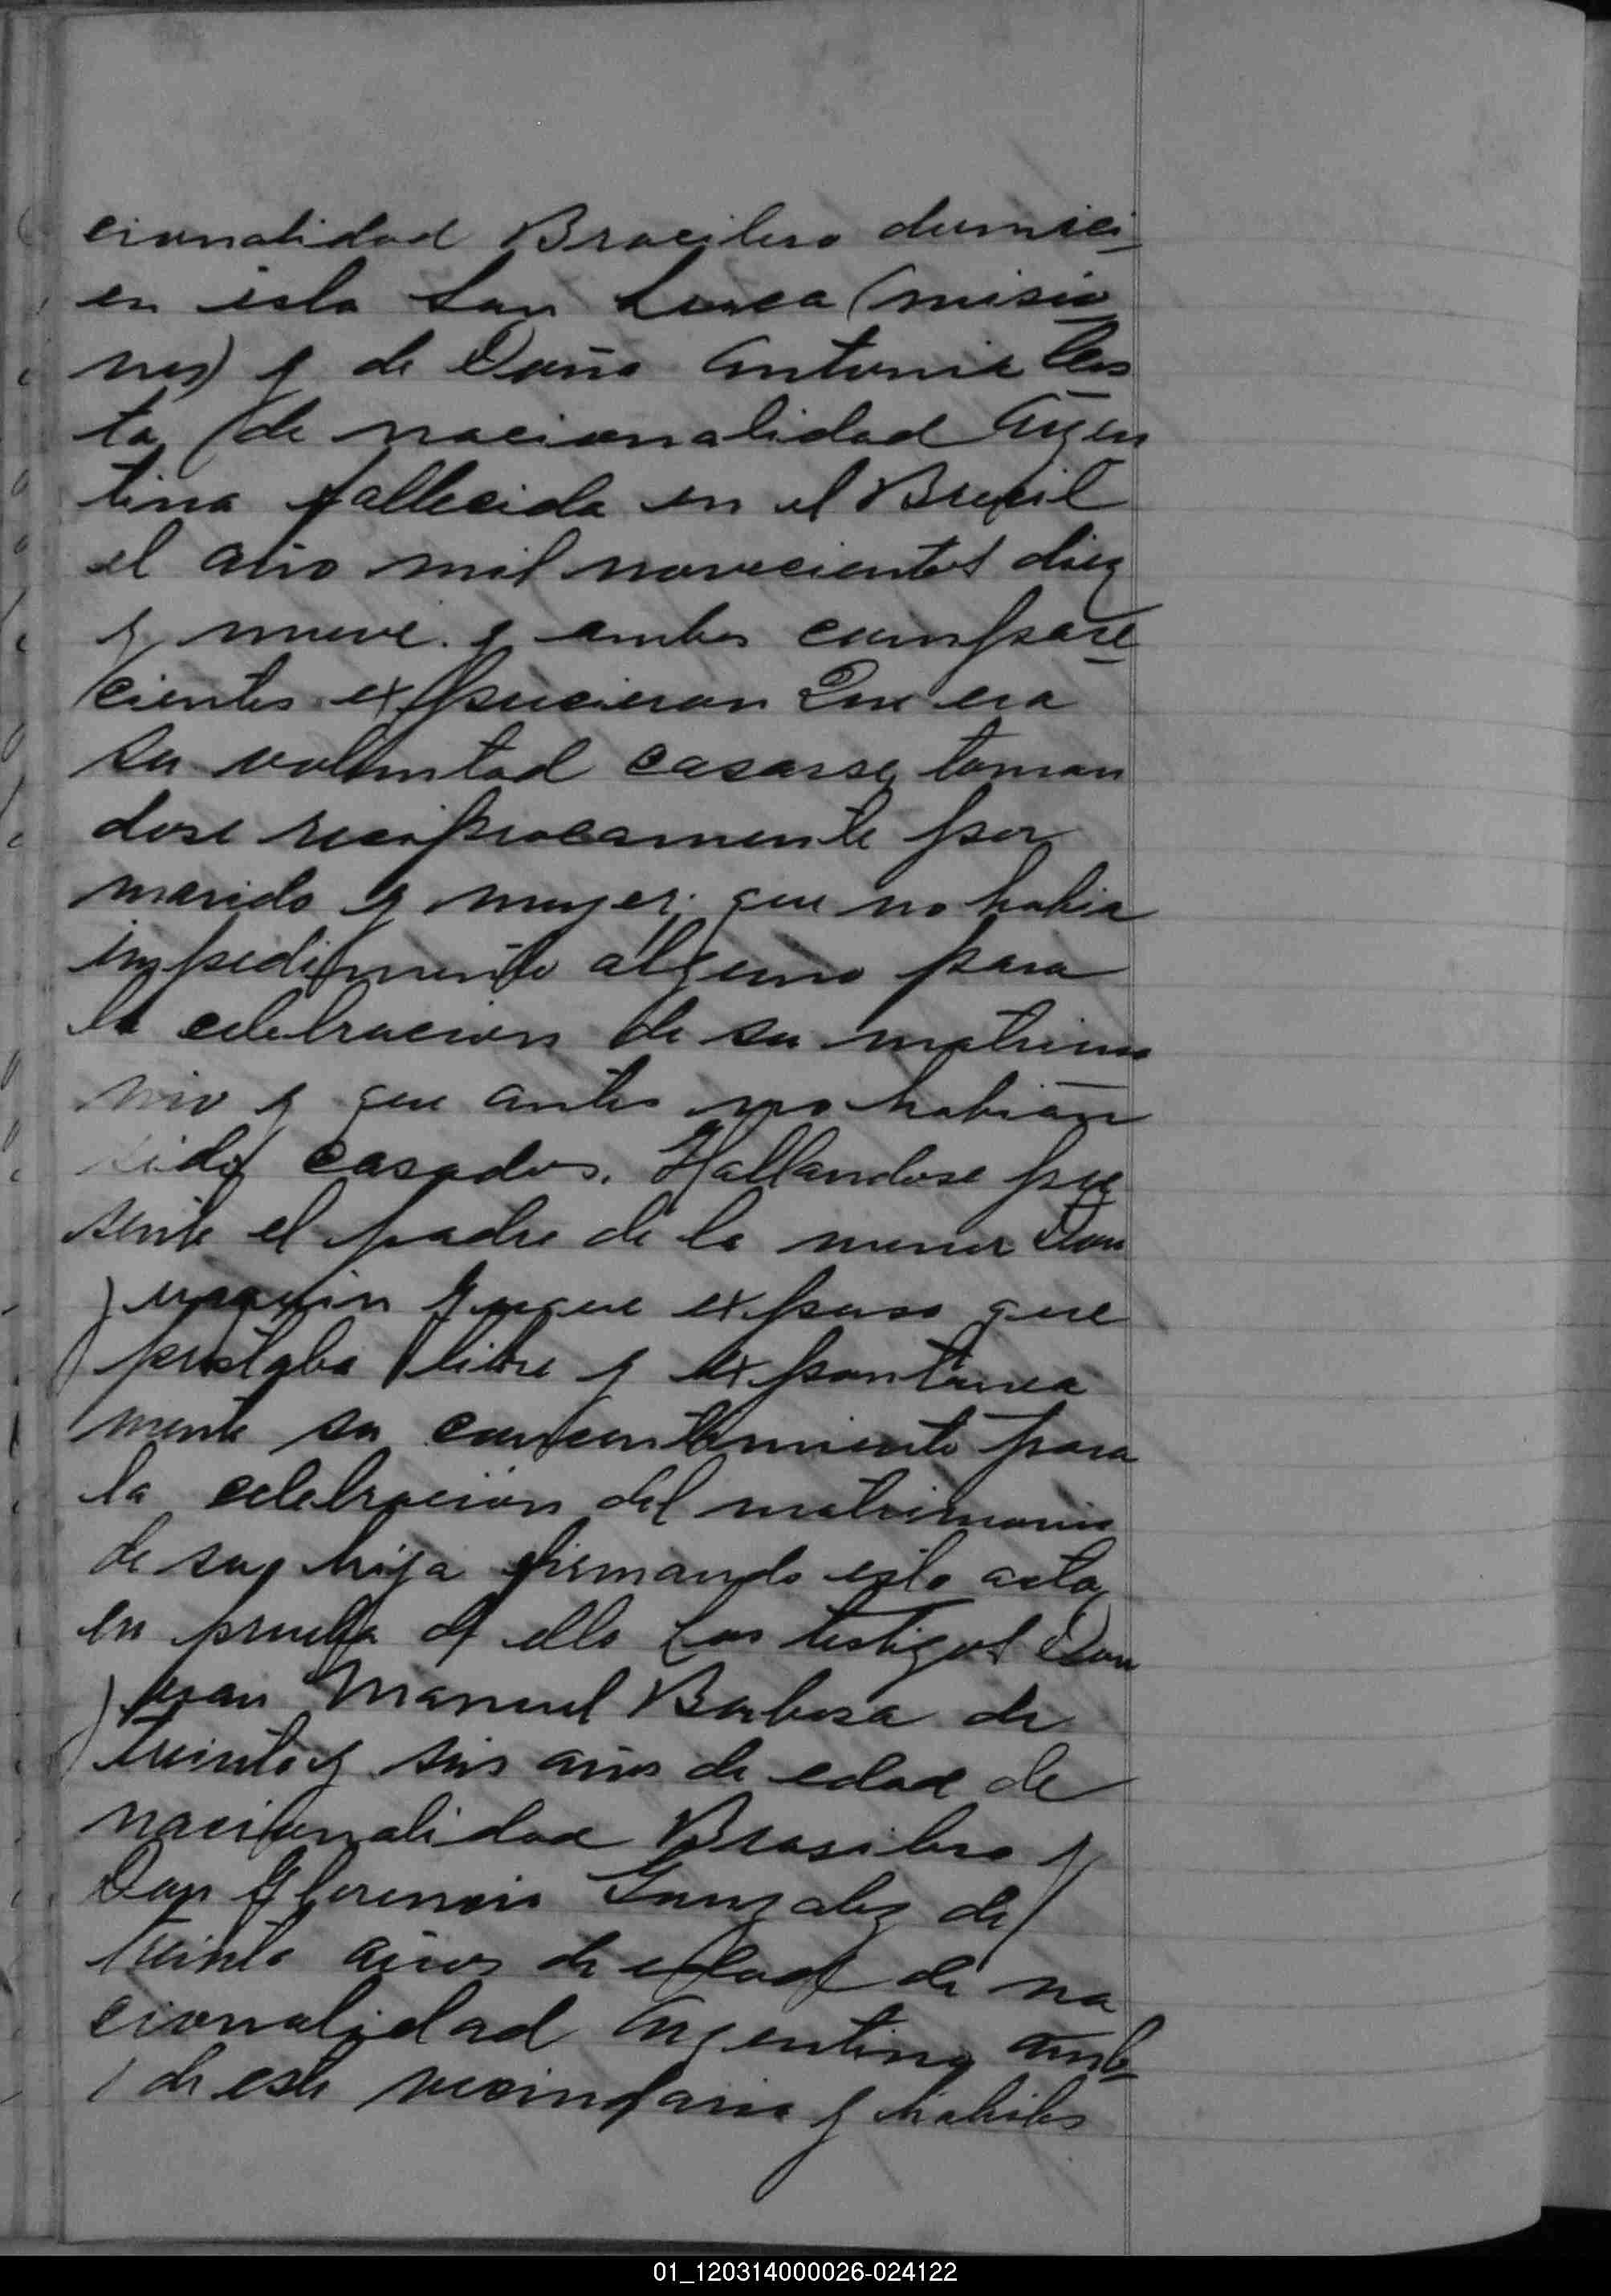 cionalidad Bracilero domici-
en esta San (misio
nes) y de Doña Antonia
ta, de nacionalidad Argen
tina fallecida en el Brecil
el año mil novecientos diez
y nueve. y ambos compare
cientes expucieron Que era
su voluntad casarse, toman
dose reciprocamente por
marido y mujer; que no habia
impedimento alguno para
la celebracion de su matrimo
nio y que antes no habian
sido casados. Hallandose pre
sente el padre de la menor Don
Juaquin expuso que
prestaba libre y expontanea
mente su concentimiento para
la celebracion del matrimonio
de su hija firmando esta acta
en prueba de ello Los testigos Don
Juan Manuel Barbosa de
treinta y seis años de edad de
nacionalidad Brasilero y
Don Florencio Gonzalez de
treinta años de edad de na
cionalidad Argentina amb-
de este vecindario y habiles
01_120314000026-024122